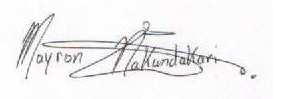 Mayron Nakandakari